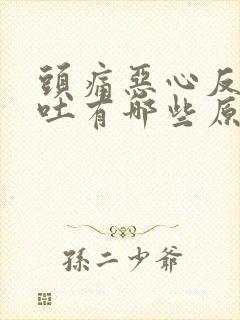 頭痛惡心反
吐有哪些原
孫二少爺